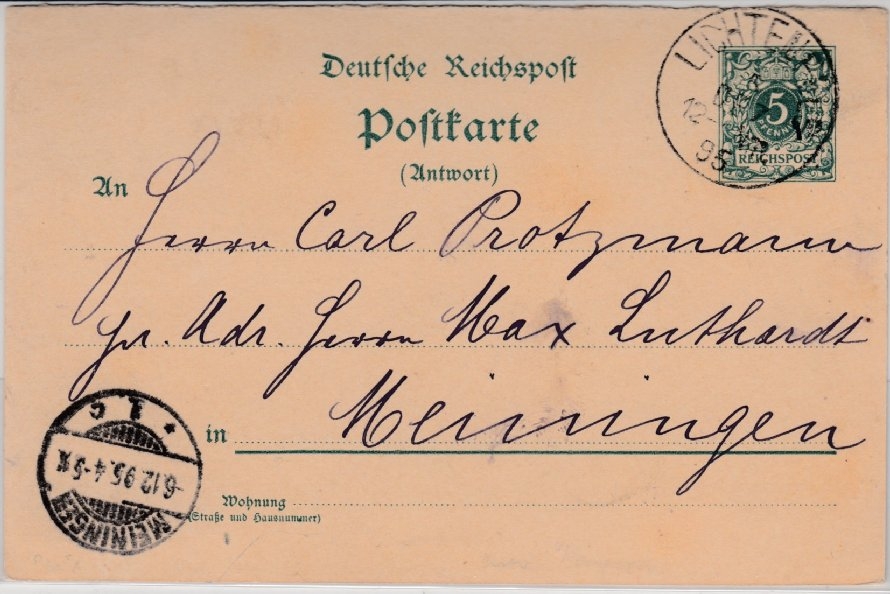 Deutsche Reichspost
Postkarte
(Antwort)
5
PFENNIG
REICHSPOST
12
95
An
Herrn Carl Protzmann
pr. Adr. Herrn Max Luthardt
in Meiningen
Wohnung
(Straße und Hausnummer)
MEININGEN
6.12.95.4-5N.
* 1 c